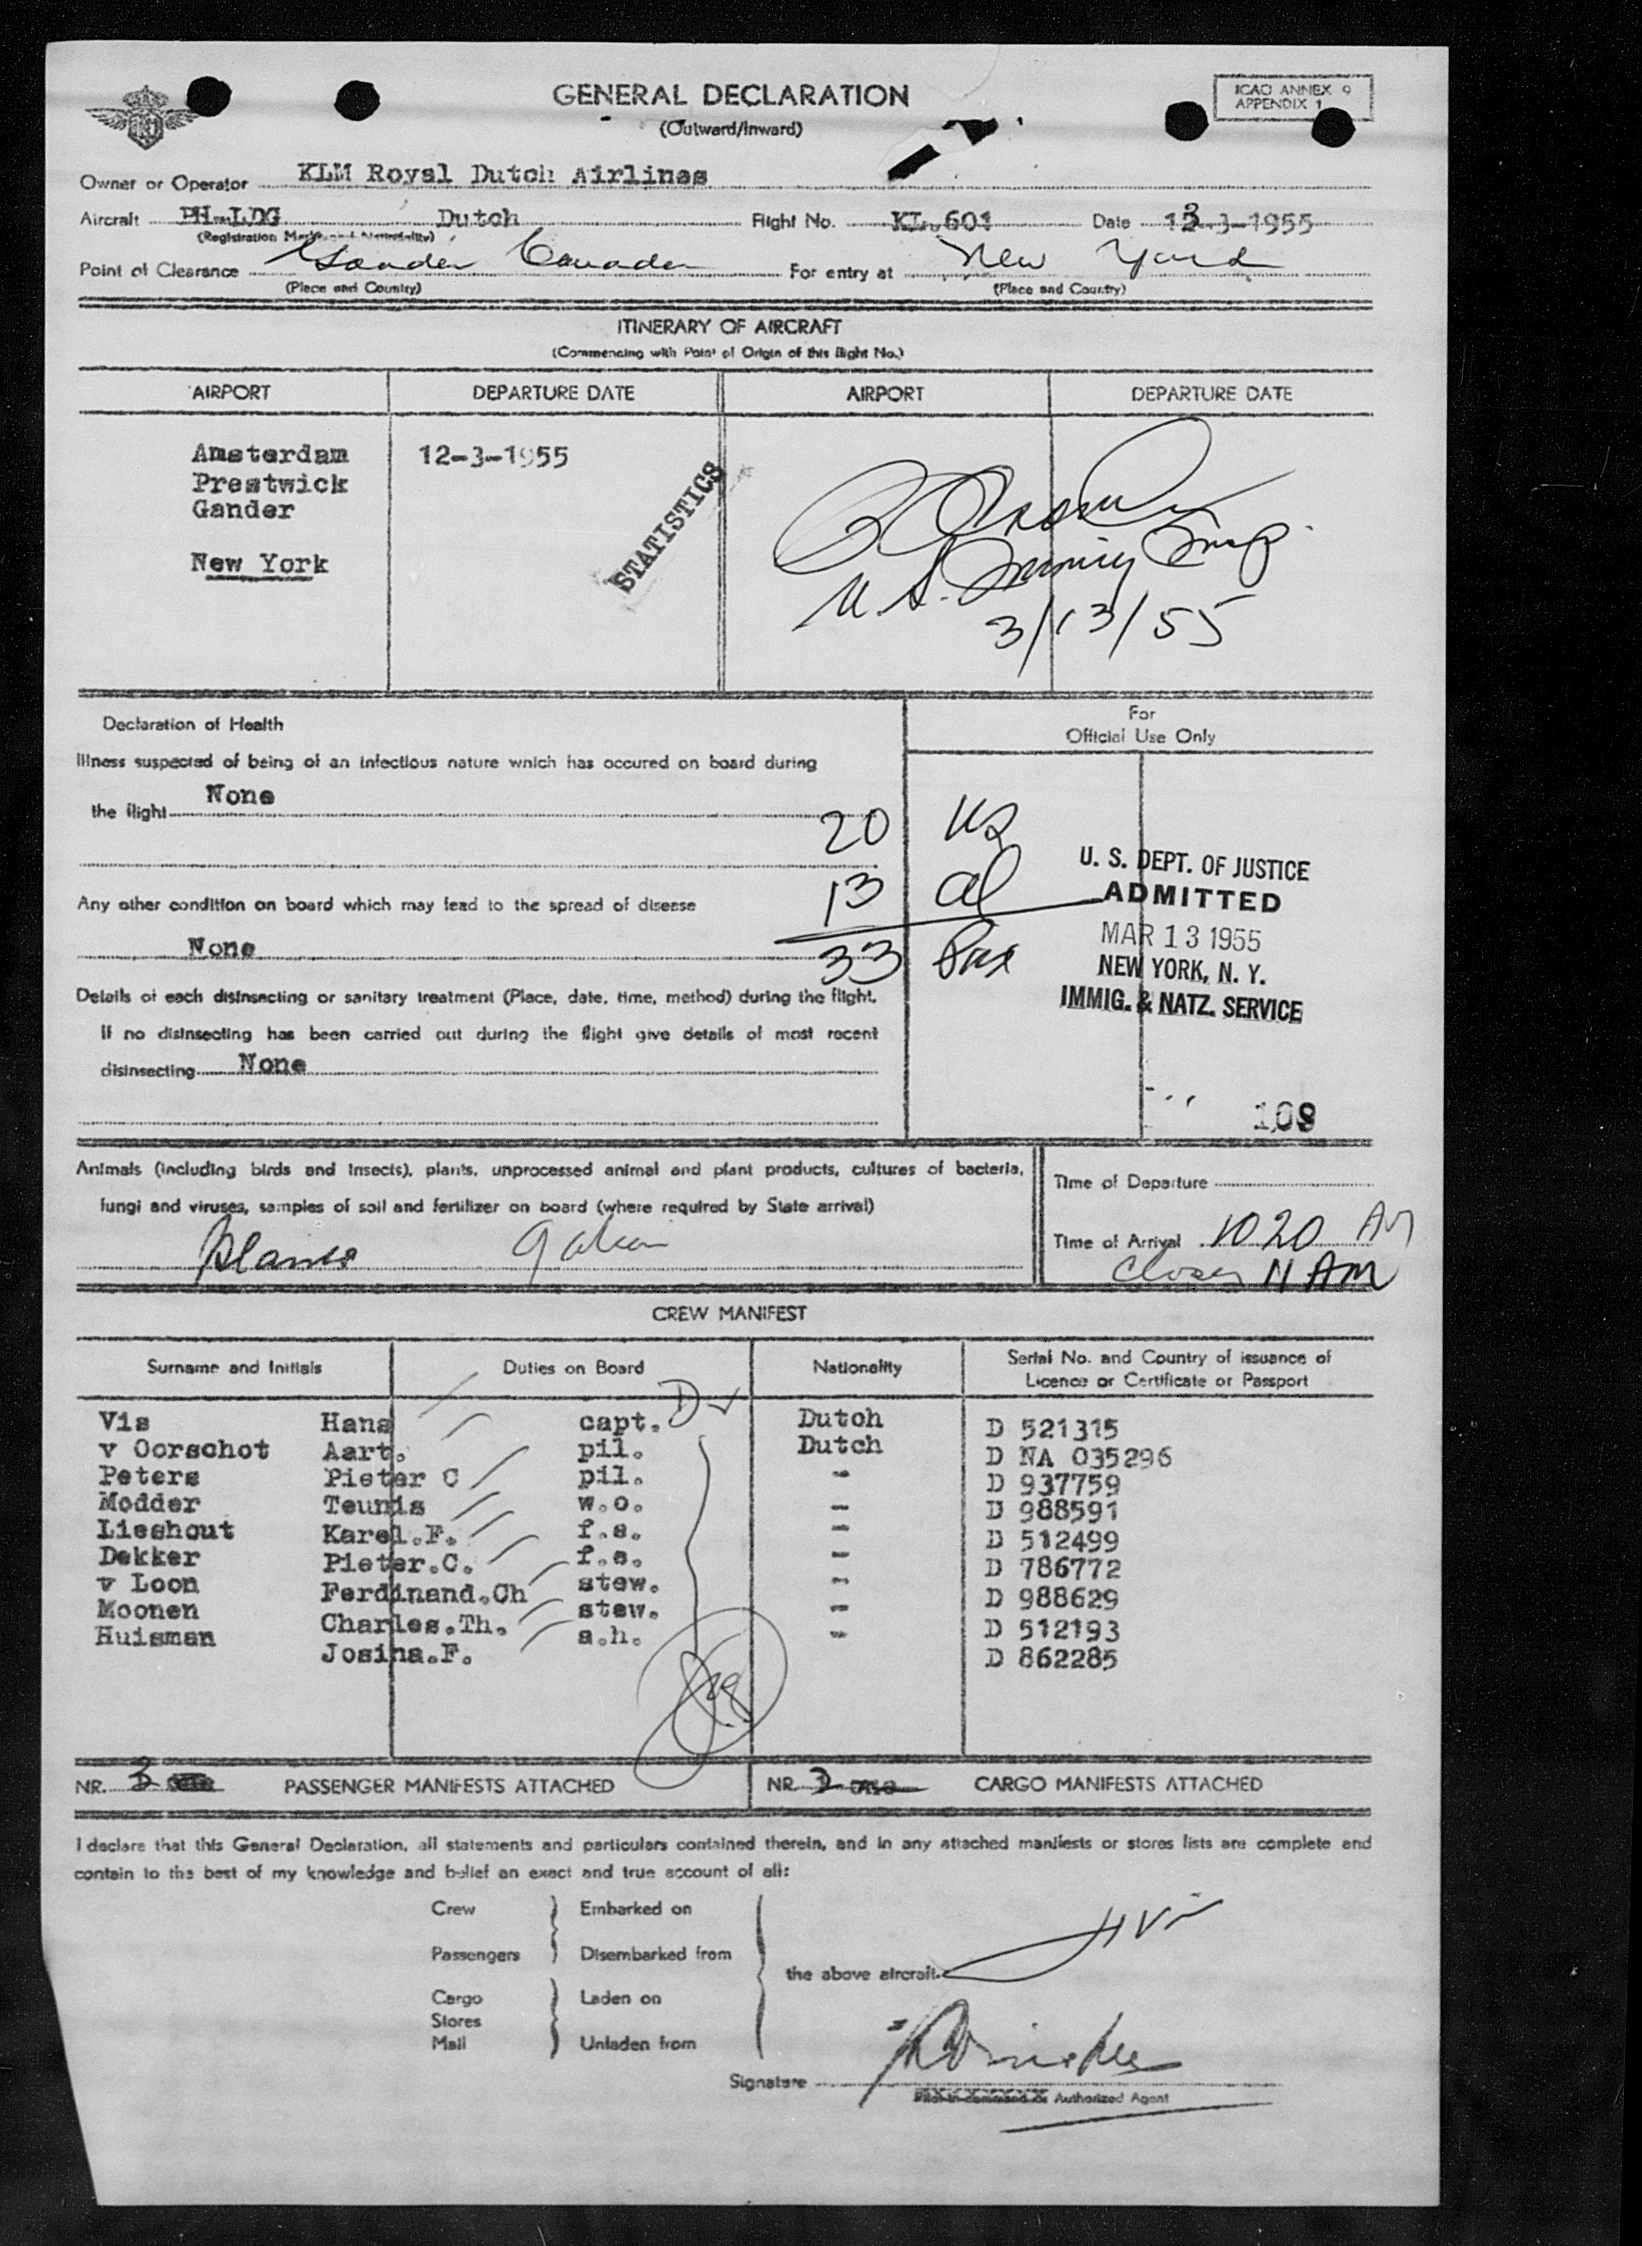 GENERAL DECLARATION
(Outward/Inward)
ICAO ANNEX 9
APPENDIX 1
Owner or Operator KLM Royal Dutch Airlines
Aircraft PH-LDG Dutch Flight No. KL.601 Date 13-3-1955
(Registration Marks and Nationality)
Point of Clearance Gander Canada For entry at New York
(Place and Country) (Place and Country)
ITINERARY OF AIRCRAFT
(Commencing with Point of Origin of this flight No.)
AIRPORT DEPARTURE DATE AIRPORT DEPARTURE DATE
Amsterdam 12-3-1955
Prestwick
Gander
New York
STATISTICS
U.S. Immig Insp.
3/13/55
Declaration of Health
For
Official Use Only
Illness suspected of being of an infectious nature which has occured on board during
the flight None
20 US
Any other condition on board which may lead to the spread of disease
13 al
None
33 Pax
U. S. DEPT. OF JUSTICE
ADMITTED
MAR 13 1955
NEW YORK, N. Y.
IMMIG. & NATZ. SERVICE
Details of each disinsecting or sanitary treatment (Place, date, time, method) during the flight.
If no disinsecting has been carried out during the flight give details of most recent
disinsecting None
109
Animals (including birds and insects), plants, unprocessed animal and plant products, cultures of bacteria,
fungi and viruses, samples of soil and fertilizer on board (where required by State arrival)
Time of Departure
Time of Arrival 1020 AM
11 AM
CREW MANIFEST
Surname and Initials Duties on Board Nationality Serial No. and Country of issuance of
Licence or Certificate or Passport
Vis Hans capt. D Dutch D 521315
v Oorschot Aart. pil. Dutch D NA 035296
Peters Pieter C pil. - D 937759
Modder Teunis w.o. - D 988591
Lieshout Karel.F. f.s. - D 512499
Dekker Pieter.C. f.s. - D 786772
v Loon Ferdinand.Ch stew. - D 988629
Moonen Charles.Th. stew. - D 512193
Huisman Josina.F. a.h. - D 862285
NR. 3 PASSENGER MANIFESTS ATTACHED NR. 2 CARGO MANIFESTS ATTACHED
I declare that this General Declaration, all statements and particulars contained therein, and in any attached manifests or stores lists are complete and
contain to the best of my knowledge and belief an exact and true account of all:
Crew Embarked on
Passengers Disembarked from
the above aircraft.
Cargo Laden on
Stores
Mail Unladen from
Signature
Pilot in command or Authorized Agent